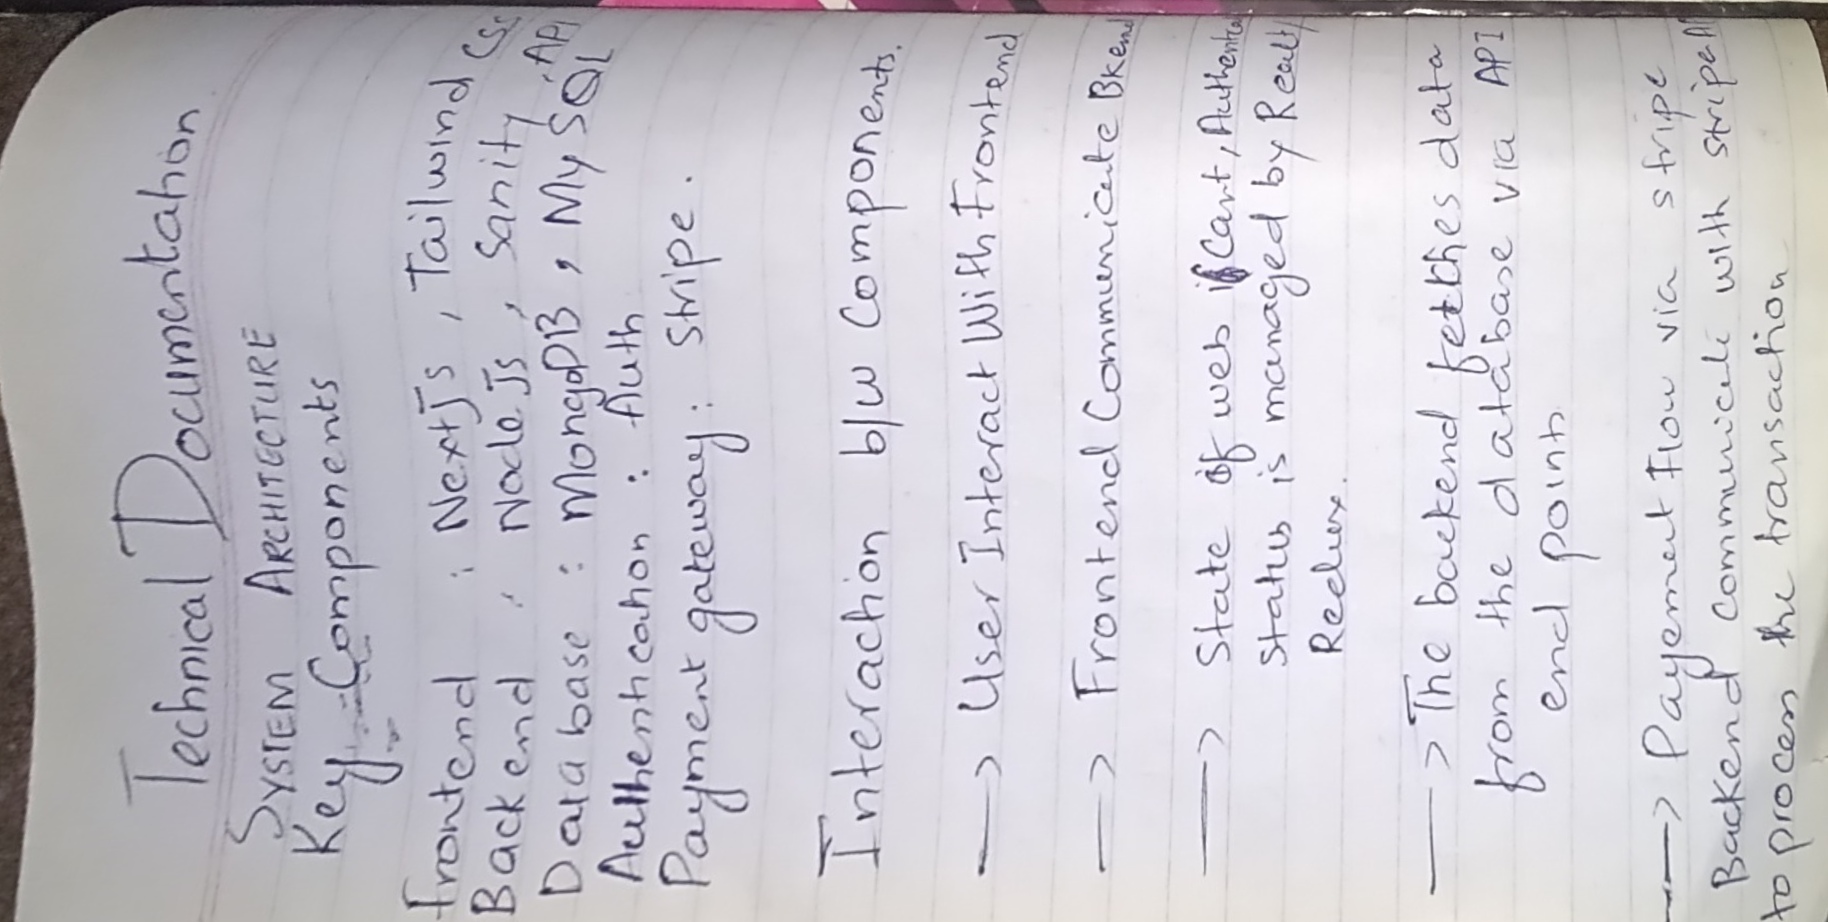 Technical Documentation
SYSTEM ARCHITECTURE
Key Components
Frontend : NextJs, Tailwind Css
Backend : NodeJs, Sanity API
Database : MongoDB, MySQL
Authentication : Auth
Payment gateway : Stripe.
Interaction b/w Components.
→ User Interact With Frontend
→ Frontend Communicate Bkend
→ State of web Cart, Authentica
status is managed by React/
Redux.
→ The backend fetches data
from the database via API
end point
→ Payement Flow via stripe
Backend communicate with stripe API
to process the transaction